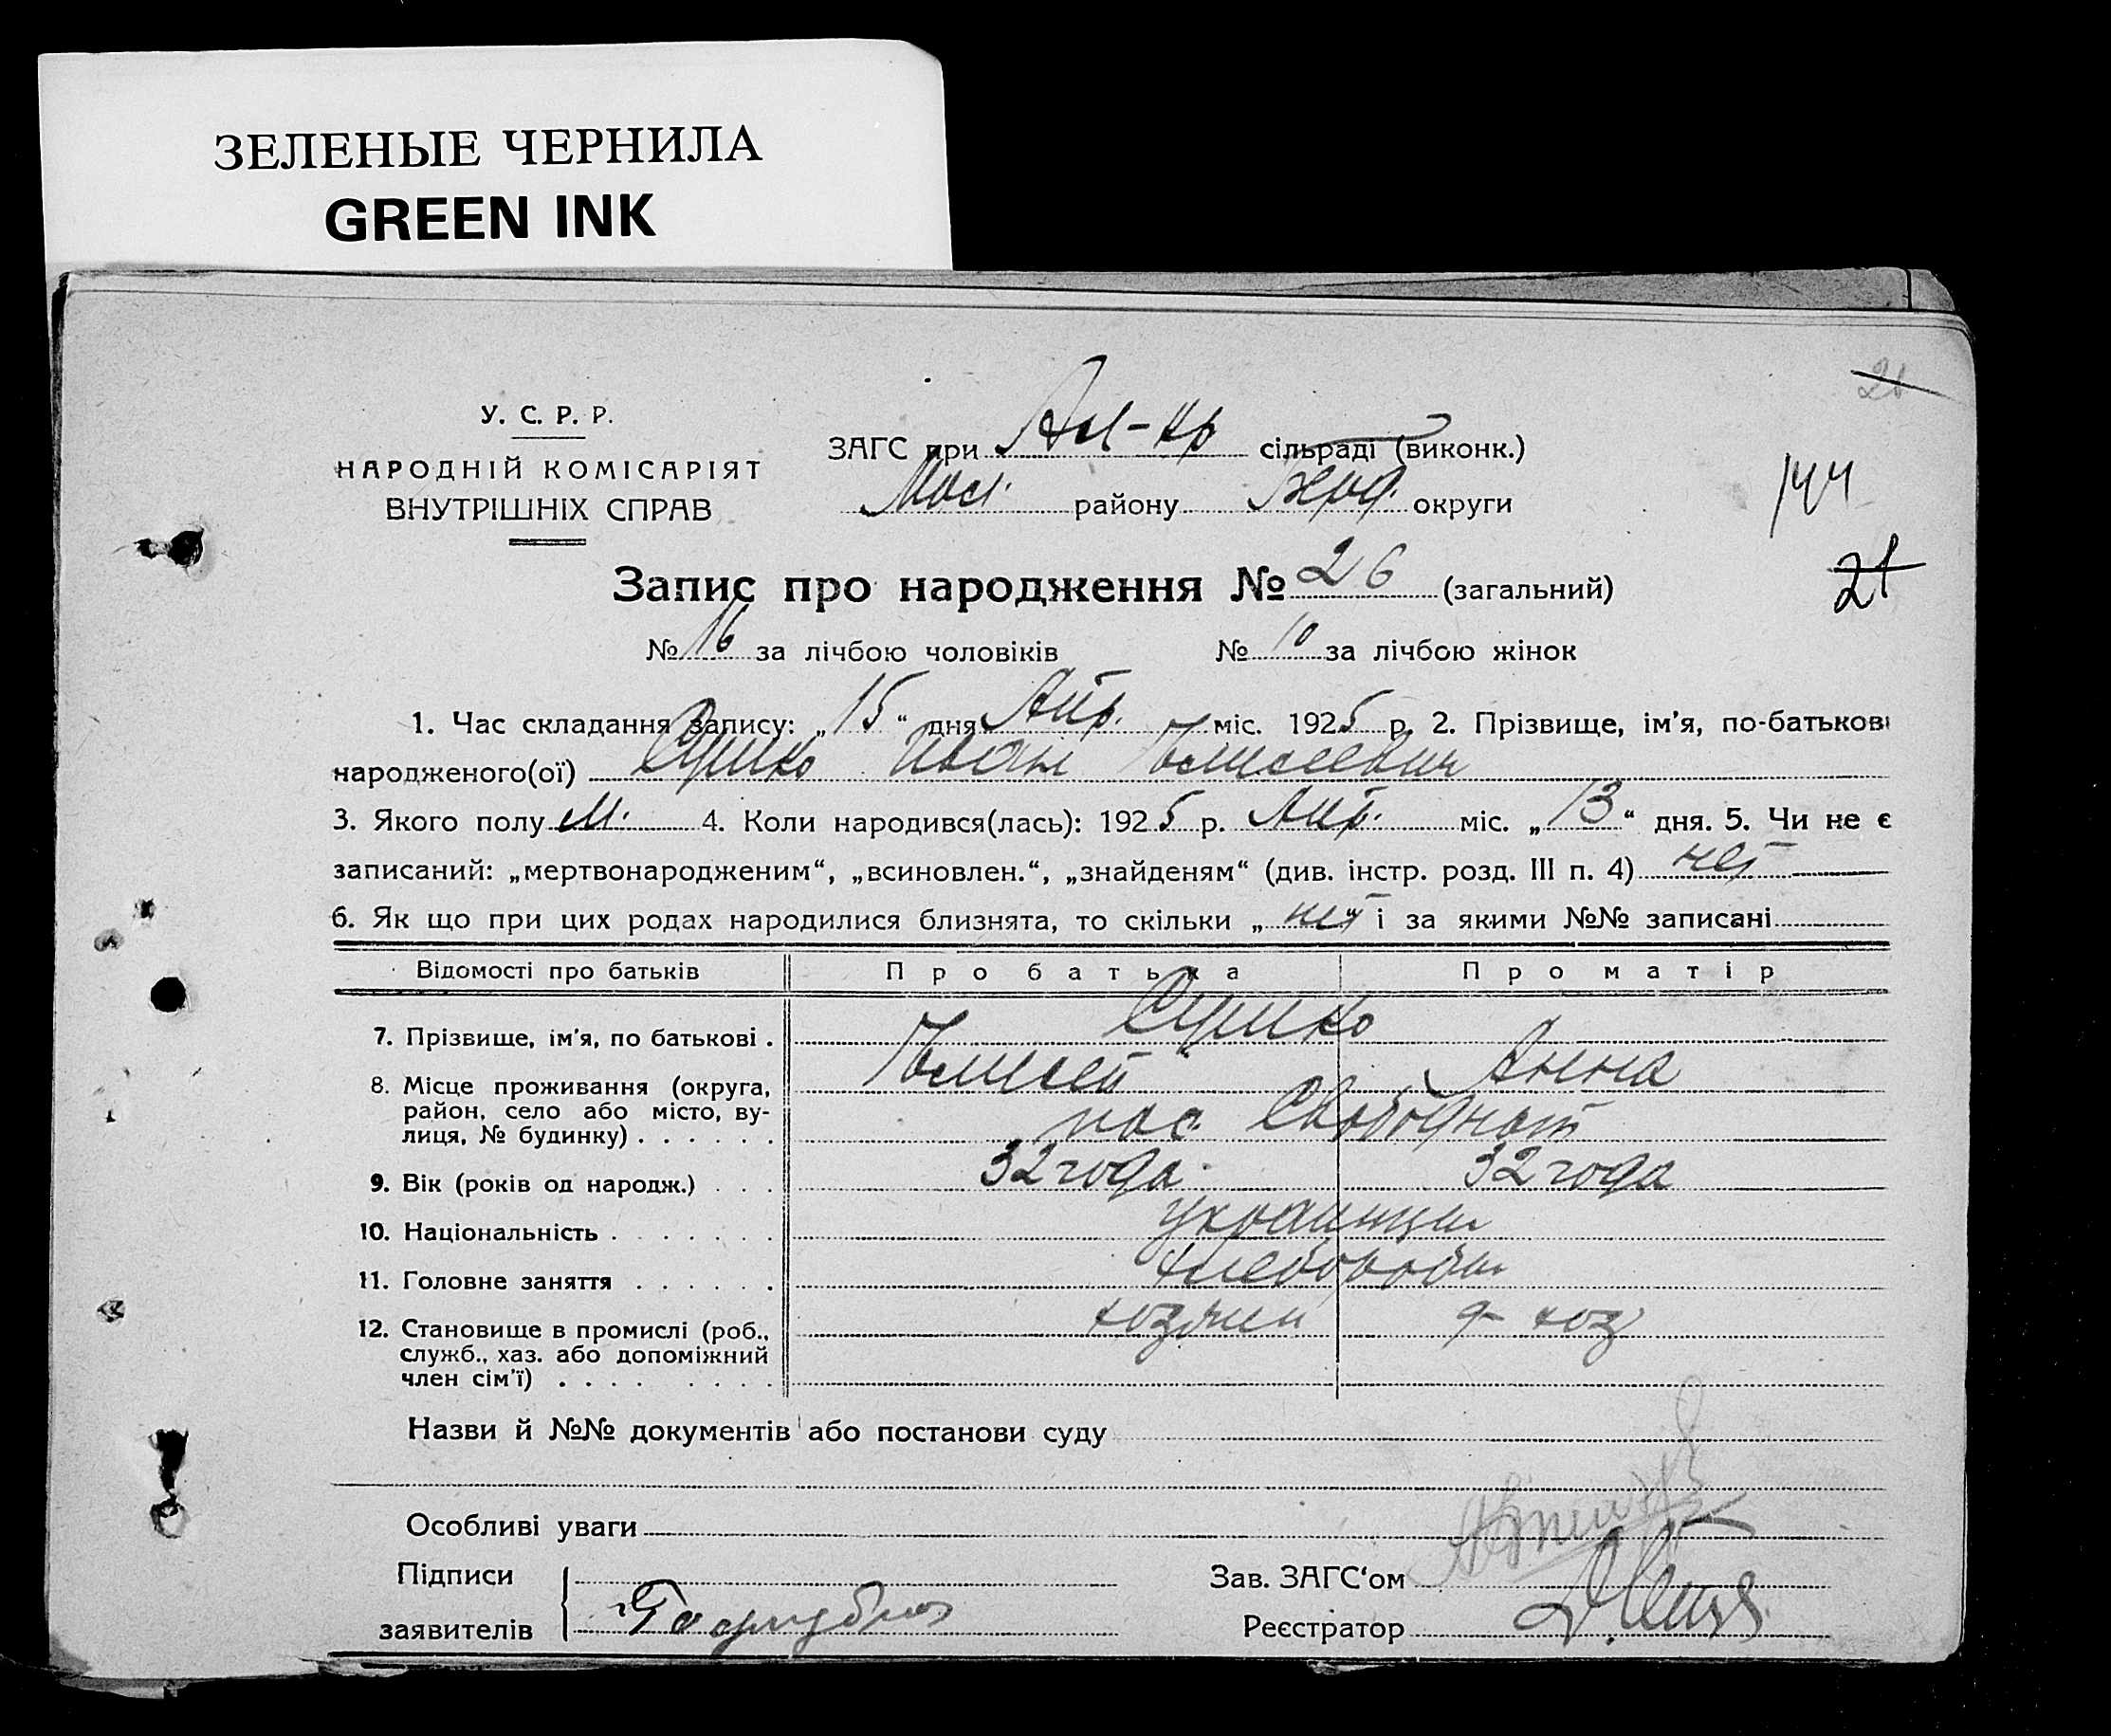 ЗЕЛЕНЫЕ ЧЕРНИЛА
GREEN INK
21
У. С. Р. Р.
НАРОДНІЙ КОМІСАРІЯТ
ВНУТРІШНІХ СПРАВ
ЗАГС при сільраді (виконк.)
району округи
144
21
Запис про народження № 26 (загальний)
№ 16 за лічбою чоловіків № 10 за лічбою жінок
1. Час складання запису: „15“ дня Апр. міс. 1925 р. 2. Прізвище, ім'я, по-батькові
народженого(ої) Иван Елисеевич
3. Якого полу М. 4. Коли народився(лась): 1925 р. Апр. міс. „13“ дня. 5. Чи не є
записаний: „мертвонародженим“, „всиновлен.“, „знайденям“ (див. інстр. розд. III п. 4) нет
6. Як що при цих родах народилися близнята, то скільки „нет“ і за якими №№ записані
Відомості про батьків Про батька Про матір
7. Прізвище, ім'я, по батькові .
Елисей Анна
8. Місце проживання (округа,
район, село або місто, ву-
лиця, № будинку) . . . . . . пос.
9. Вік (років од народж.) . . . 32 года 32 года
10. Національність . . . . . . . украинцы
11. Головне заняття . . . . . . хлеборобы
12. Становище в промислі (роб., хозяин д-хоз
служб., хаз. або допоміжний
член сім'ї) . . . . . . . .
Назви й №№ документів або постанови суду
Особливі уваги
Підписи
заявителів
Зав. ЗАГС‘ом
Реєстратор